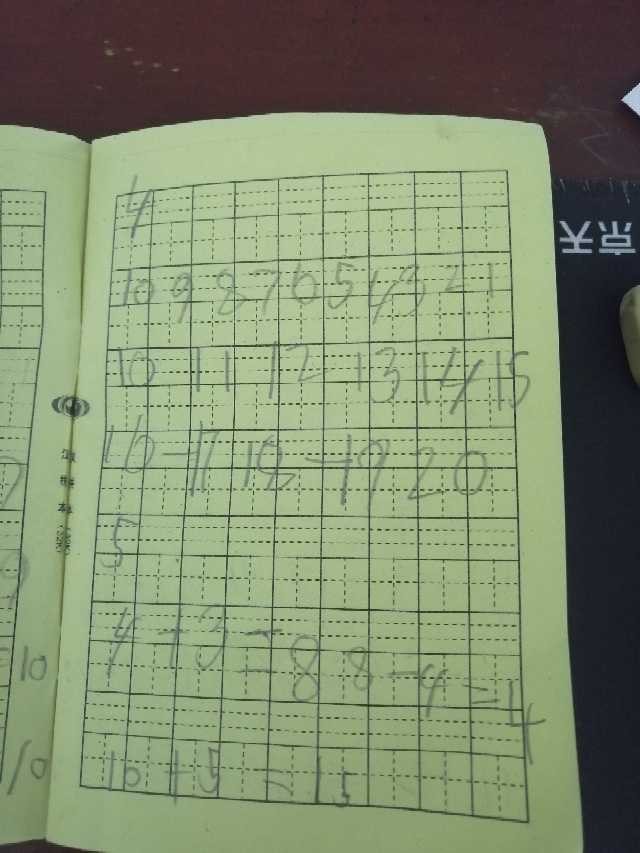 4
10 9 8 7 6 5 4 3 2 1
10 11 12 13 14 15
16 17 18 19 20
5
4+3=8 8-4=4
10+5=15
10
10
京天